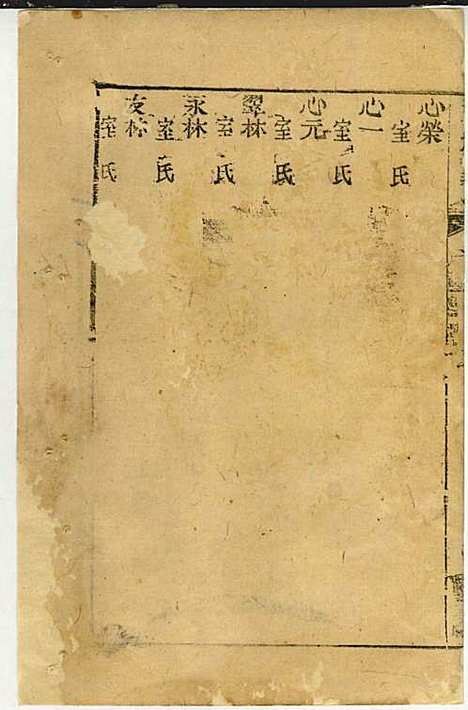 心榮
室 氏
心一
室 氏
心元
室 氏
翠林
室 氏
永林
室 氏
友林
室 氏